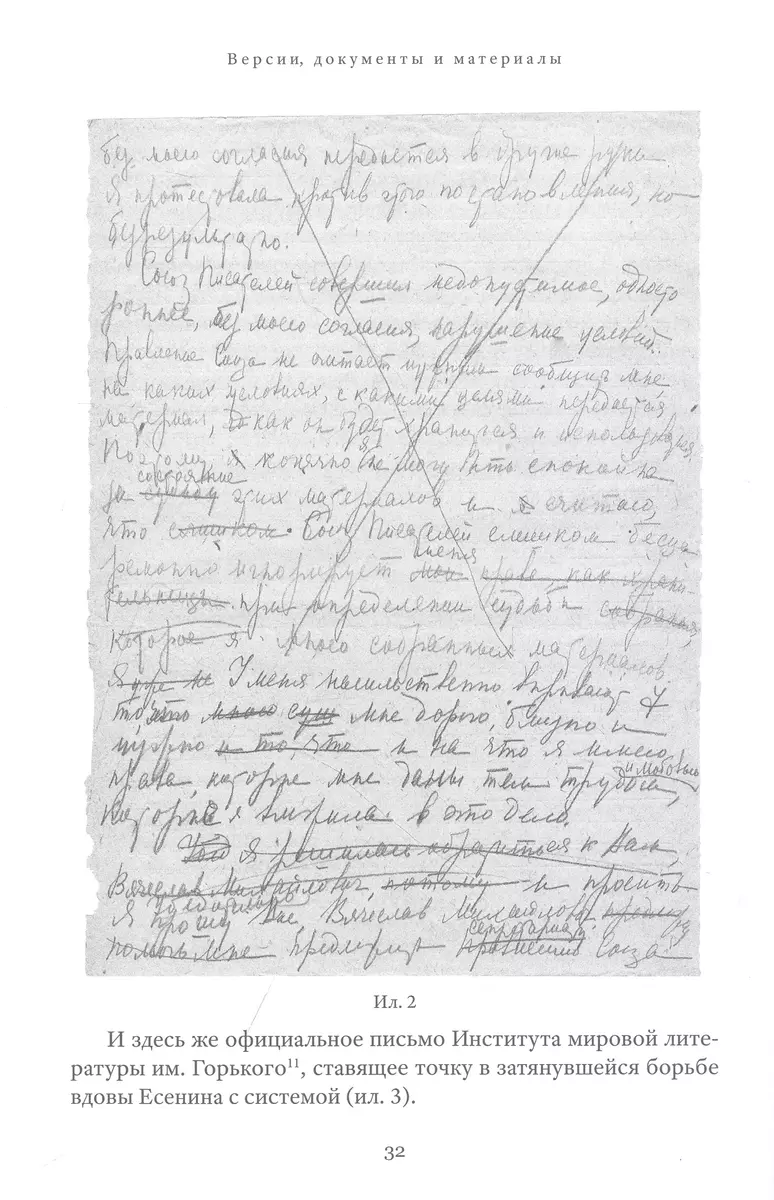 Версии, документы и материалы
без моего согласия передается в другие руки.
Я протестовала против этого постановления, но
безрезультатно.
Союз Писателей совершил недопустимое, односто
роннее, без моего согласия, нарушение условий.
Правление Союза не считает нужным сообщить мне
на каких условиях, с какими целями передается
материал, как он будет храниться и использоваться
Поэтому, я конечно не могу быть спокойна
состояние
за судьбу этих материалов и я считаю,
что слишком Союз Писателей слишком бесце
меня
ремонно игнорирует мои права, как храни
тельницы при определении судьбы собрания,
которое я мною собранных материалов
Я уже не У меня насильственно вырывают
то, что мне дорого, близко и
нужно и то, что и на что я имею
и любовью
права, которые мне даны тем трудом,
который я вложила в это дело.
я решилась обратиться к Вам,
Вячеслав Михайлович, потому и просить
убедительно
Я прошу Вас, Вячеслав Михайлович
секретариату
помочь мне правлению Союза
Ил. 2
И здесь же официальное письмо Института мировой лите-
ратуры им. Горького11, ставящее точку в затянувшейся борьбе
вдовы Есенина с системой (ил. 3).
32